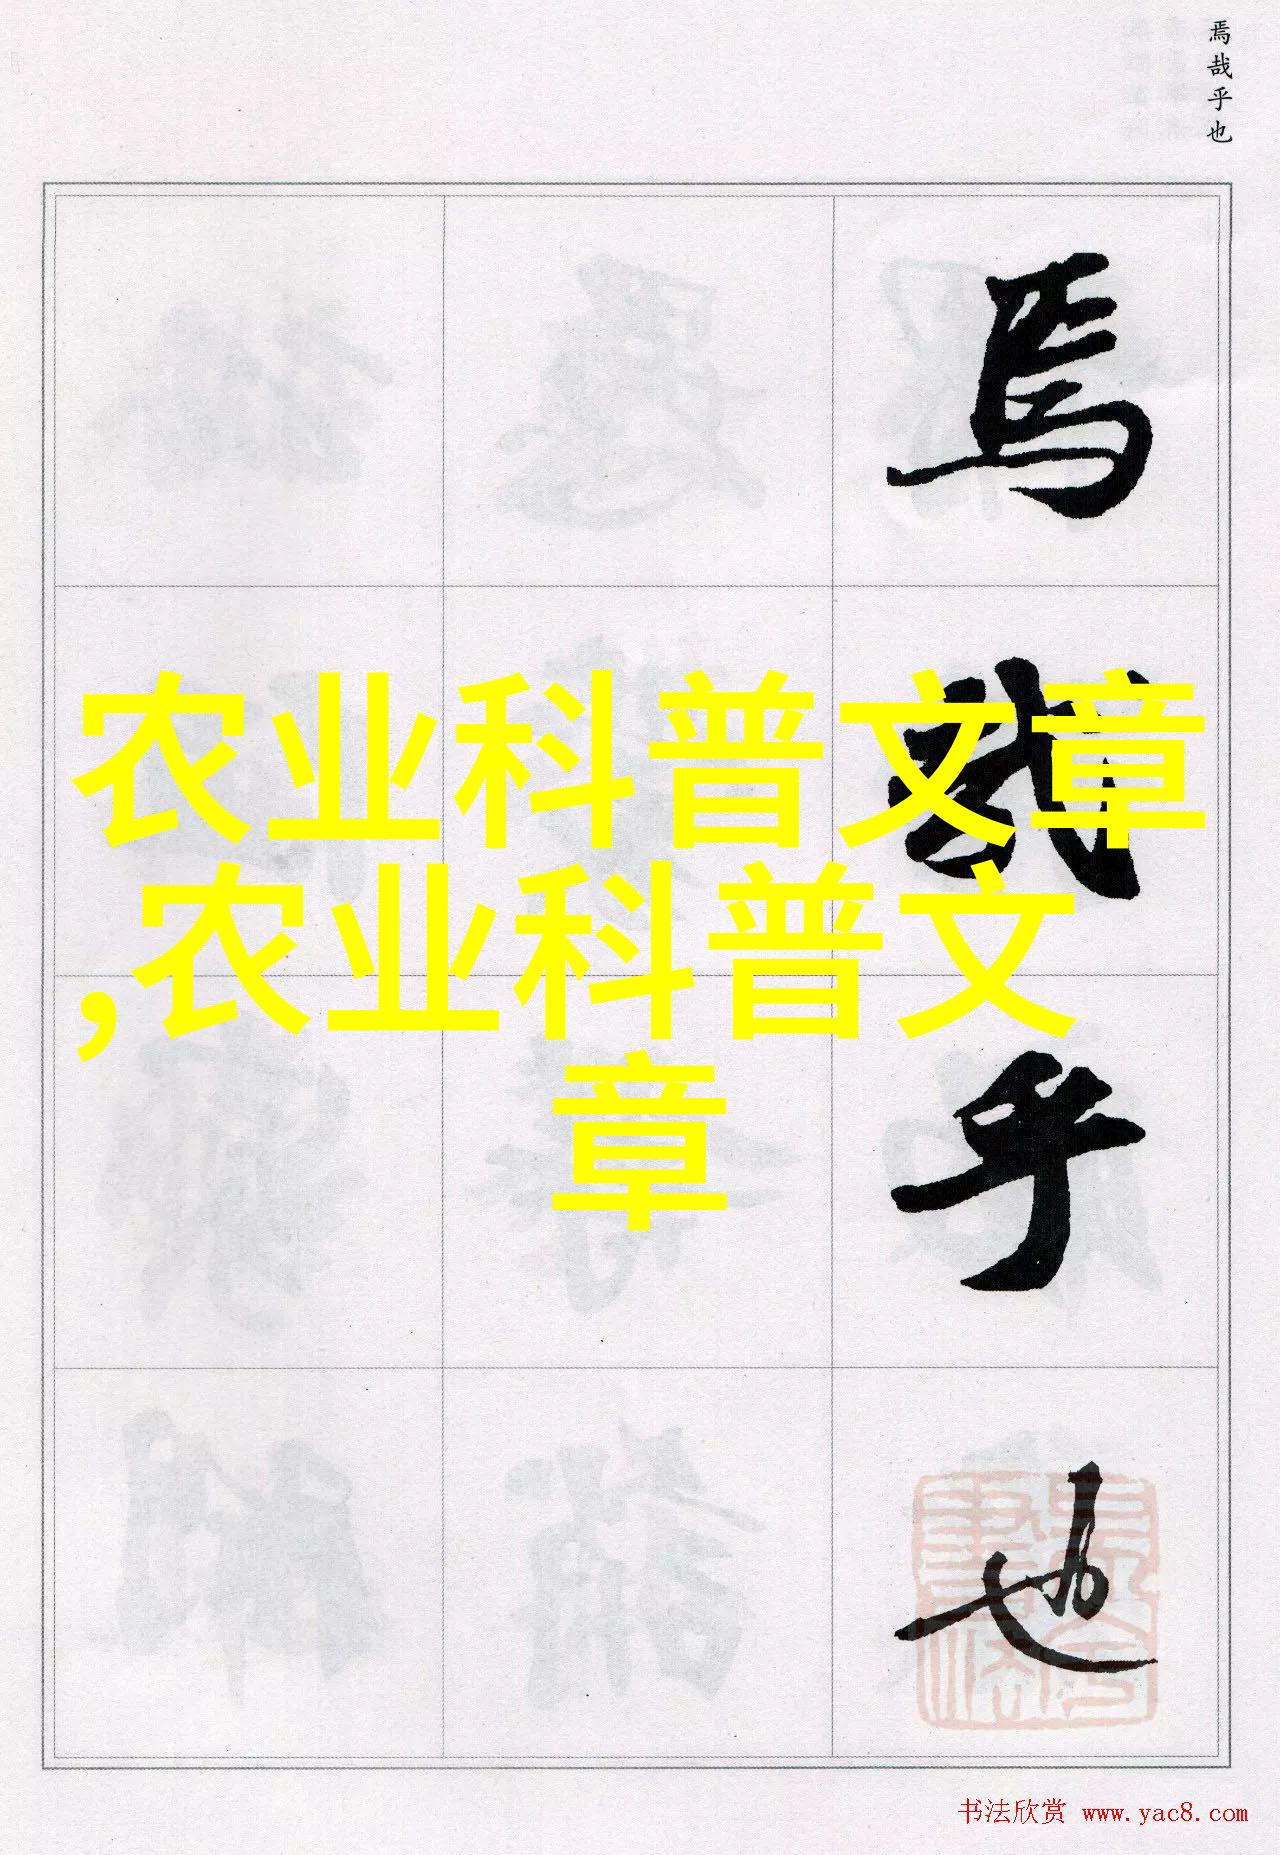 焉哉乎也
焉
哉
乎
也
农业科普文章
,农业科普文
章
书法欣赏 www.yac8.com